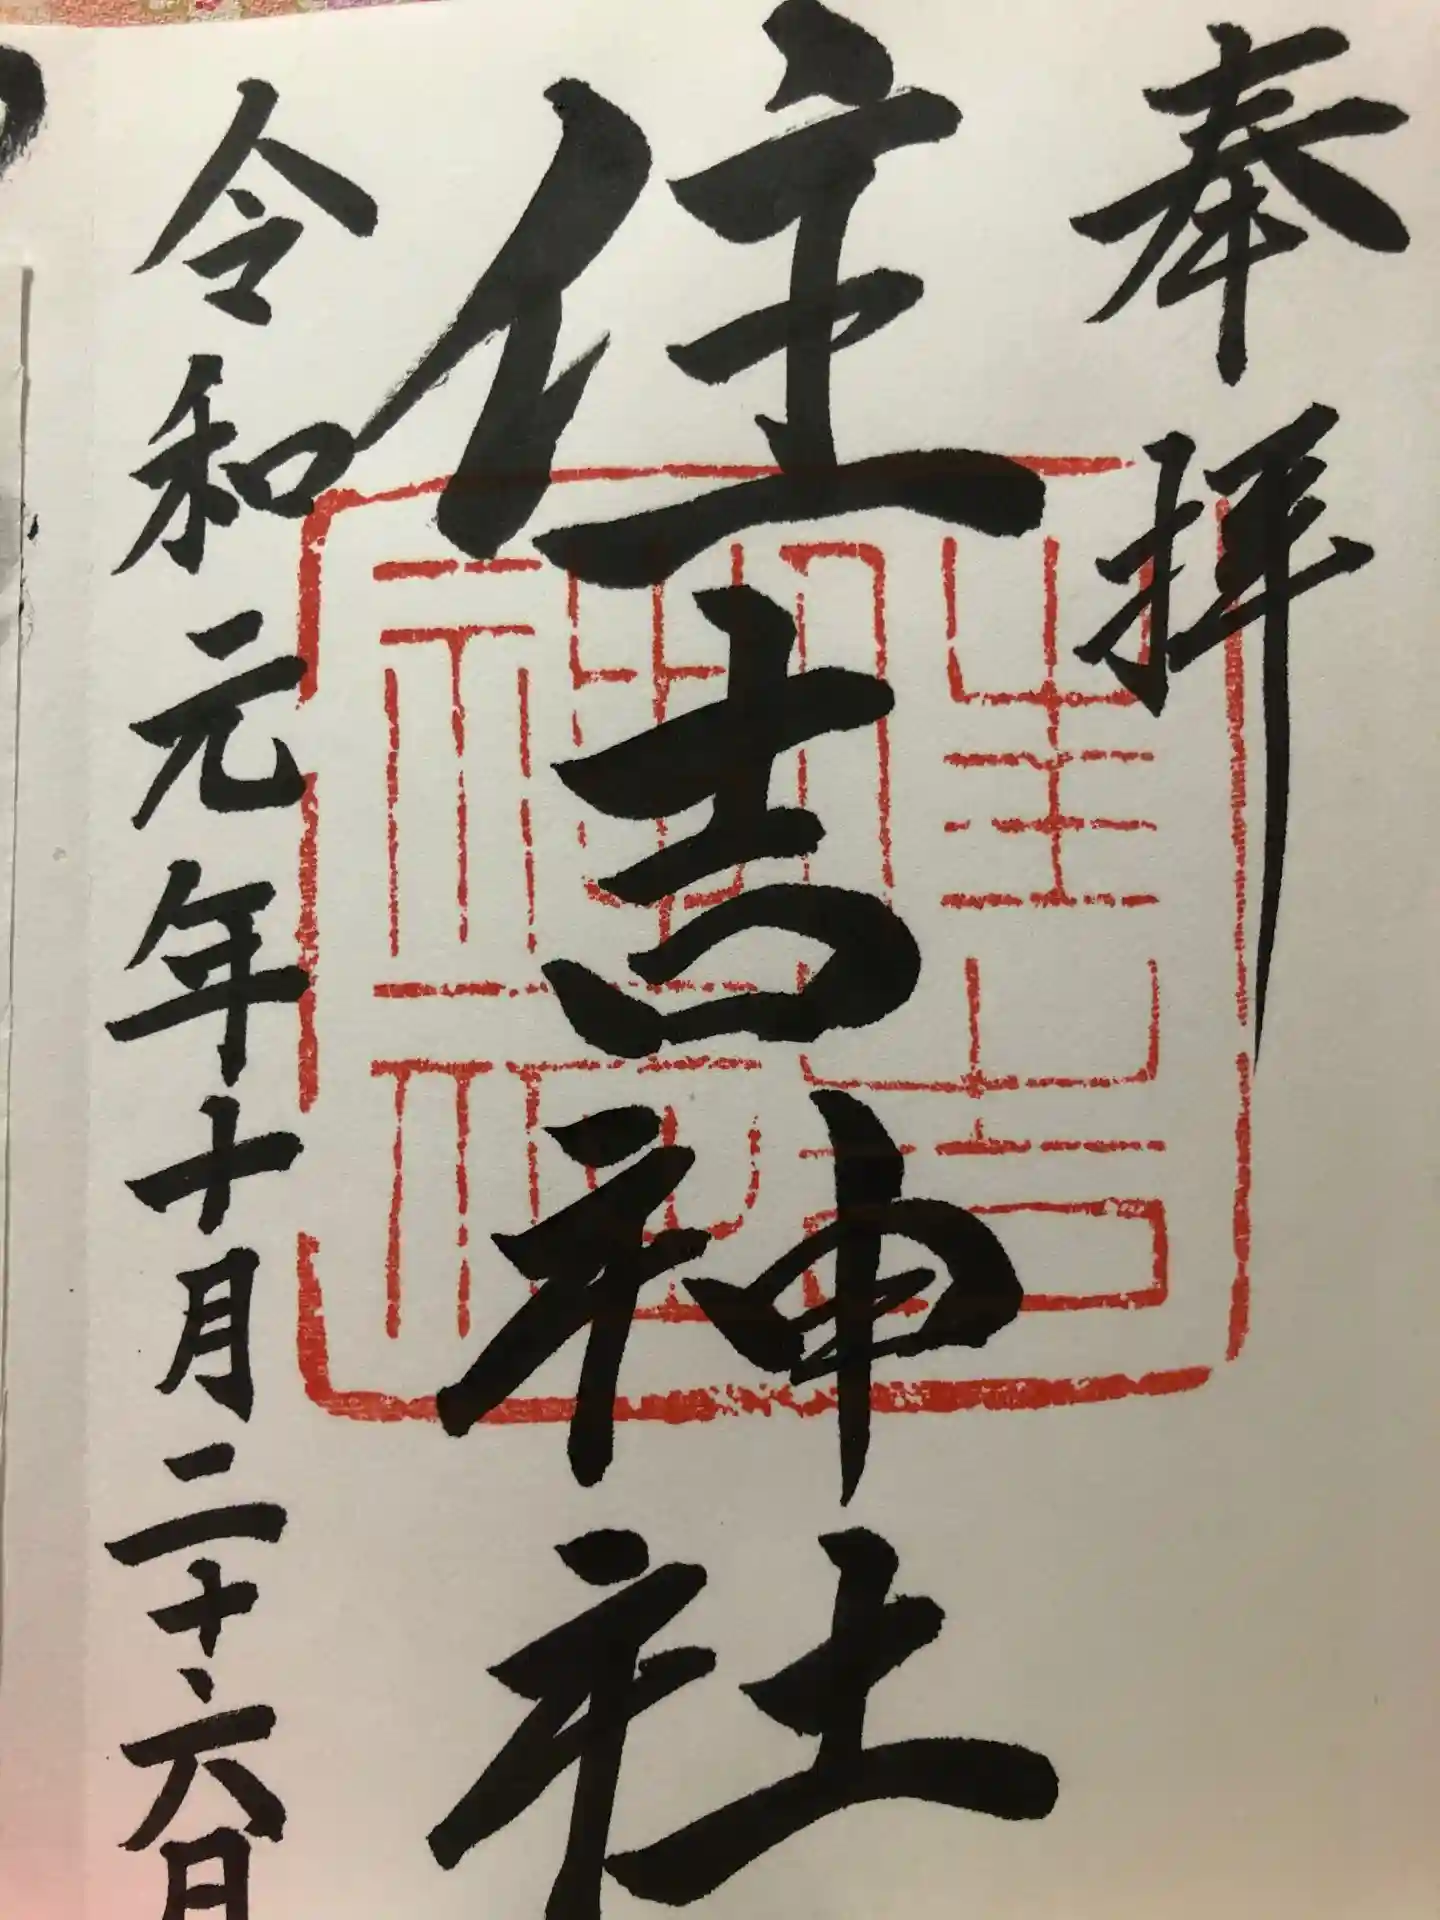 奉拝
住吉神社
住吉神社
令和元年十月二十六日